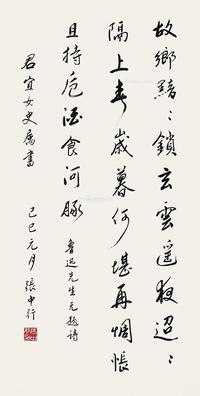 故鄉黯〻鎖玄雲遙夜迢〻
隔上春歲暮何堪再惆悵
且持卮酒食河豚
魯迅先生无題詩
君宜女史属書
己巳元月 張中行